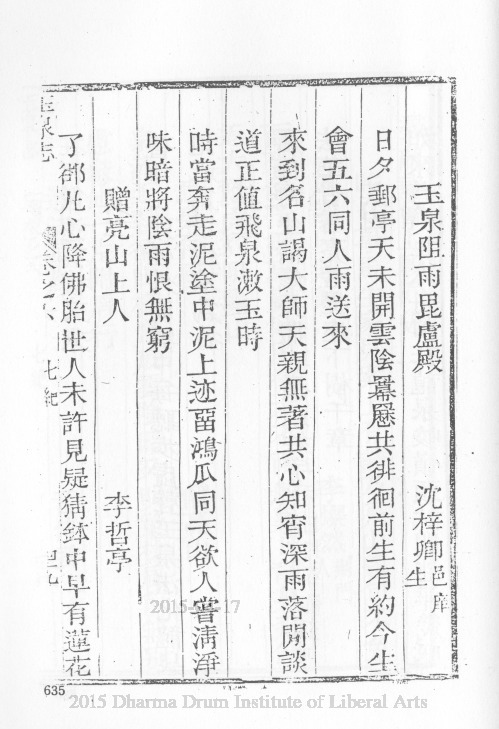 玉泉阻雨毘盧殿
沈梓卿邑庠生
日夕郵亭天未開雲陰羃䍥共徘徊前生有約今生
會五六同人雨送來
來到名山謁大師天親無著共心知宵深雨落閒談
道正值飛泉漱玉時
時當奔走泥塗中泥上迹畱鴻瓜同天欲人嘗清淨
味暗將陰雨恨無窮
贈亮山上人
李哲亭
了卻凡心降佛胎世人未許見疑猜鉢中早有蓮花
玉泉志
卷之六
七絕
635
2015 Dharma Drum Institute of Liberal Arts